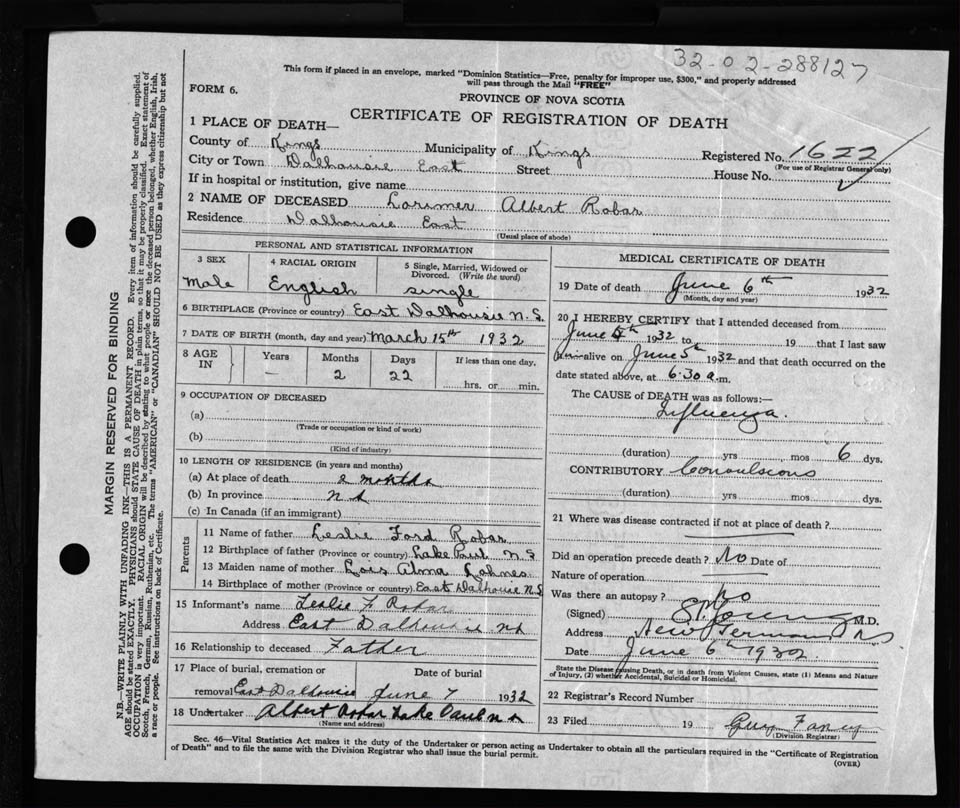 32-02-288127
This form if placed in an envelope, marked "Dominion Statistics—Free, penalty for improper use, $300," and properly addressed
will pass through the Mail "FREE"
FORM 6.
PROVINCE OF NOVA SCOTIA
CERTIFICATE OF REGISTRATION OF DEATH
1 PLACE OF DEATH—
County of Kings Municipality of Kings Registered No. 1622
(For use of Registrar General only)
City or Town Dalhousie East Street House No.
If in hospital or institution, give name
2 NAME OF DECEASED Lorimer Albert Robar
Residence Dalhousie East
(Usual place of abode)
PERSONAL AND STATISTICAL INFORMATION
3 SEX
Male
4 RACIAL ORIGIN
English
5 Single, Married, Widowed or
Divorced. (Write the word)
single
6 BIRTHPLACE (Province or country) East Dalhousie N.S.
7 DATE OF BIRTH (month, day and year) March 15th 1932
8 AGE
IN
Years
—
Months
2
Days
22
If less than one day,
hrs. or min.
9 OCCUPATION OF DECEASED
(a)
(Trade or occupation or kind of work)
(b)
(Kind of industry)
10 LENGTH OF RESIDENCE (in years and months)
(a) At place of death 2 months
(b) In province
(c) In Canada (if an immigrant)
Parents
11 Name of father Leslie Ford Robar
12 Birthplace of father (Province or country) Lake Paul N S
13 Maiden name of mother Lois Alma Lohnes
14 Birthplace of mother (Province or country) East Dalhousie N.S
15 Informant's name Leslie F Robar
Address East Dalhousie N S
16 Relationship to deceased Father
17 Place of burial, cremation or Date of burial
removal East Dalhousie June 7 1932
18 Undertaker Albert Robar Lake Paul N S
(Name and address)
MEDICAL CERTIFICATE OF DEATH
19 Date of death June 6th 1932
(Month, day and year)
20 I HEREBY CERTIFY that I attended deceased from
June 1932 to 19 that I last saw
him alive on June 5th 1932 and that death occurred on the
date stated above, at 6.30 a.m.
The CAUSE of DEATH was as follows:—
Influenza.
(duration) yrs mos 6 dys.
CONTRIBUTORY Convulsions
(duration) yrs mos dys.
21 Where was disease contracted if not at place of death?
Did an operation precede death? No Date of
Nature of operation
Was there an autopsy? No
(Signed) M.D.
Address New Germany N S
Date June 6th 1932
State the Disease causing Death, or in death from Violent Causes, state (1) Means and Nature
of Injury, (2) whether Accidental, Suicidal or Homicidal.
22 Registrar's Record Number
23 Filed 19 Guy Fancy
(Division Registrar)
Sec. 46—Vital Statistics Act makes it the duty of the Undertaker or person acting as Undertaker to obtain all the particulars required in the "Certificate of Registration
of Death" and to file the same with the Division Registrar who shall issue the burial permit.
(OVER)
MARGIN RESERVED FOR BINDING
N.B.—WRITE PLAINLY WITH UNFADING INK—THIS IS A PERMANENT RECORD. Every item of information should be carefully supplied.
AGE should be stated EXACTLY. PHYSICIANS should STATE CAUSE OF DEATH in plain terms, so that it may be properly classified. Exact statement of
OCCUPATION is very important. RACIAL ORIGIN will be described by stating to what people or race the deceased person belonged, whether English, Irish,
Scotch, French, German, Russian, Ruthenian, etc. The terms "AMERICAN" or "CANADIAN" SHOULD NOT BE USED as they express citizenship but not
a race or people. See instructions on back of Certificate.